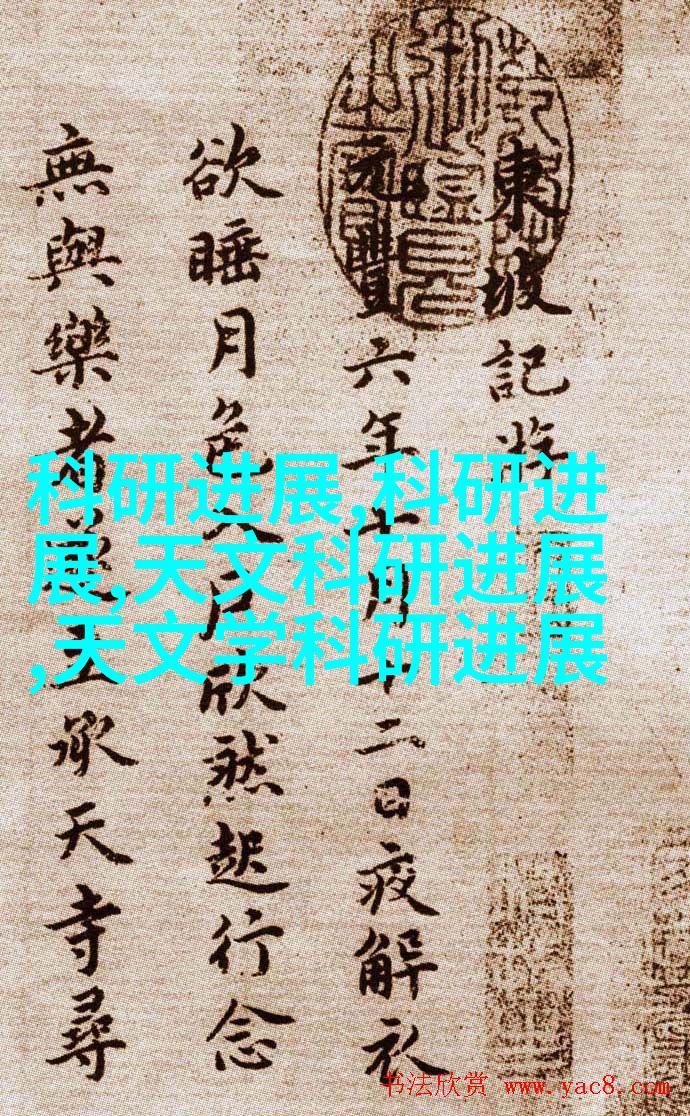 東坡記游
元豐六年十月十二日夜解衣
欲睡月色入戶欣然起行念
無與樂者遂至承天寺尋
科研进展,科研进
展,天文科研进展
,天文学科研进展
书法欣赏 www.yac8.com